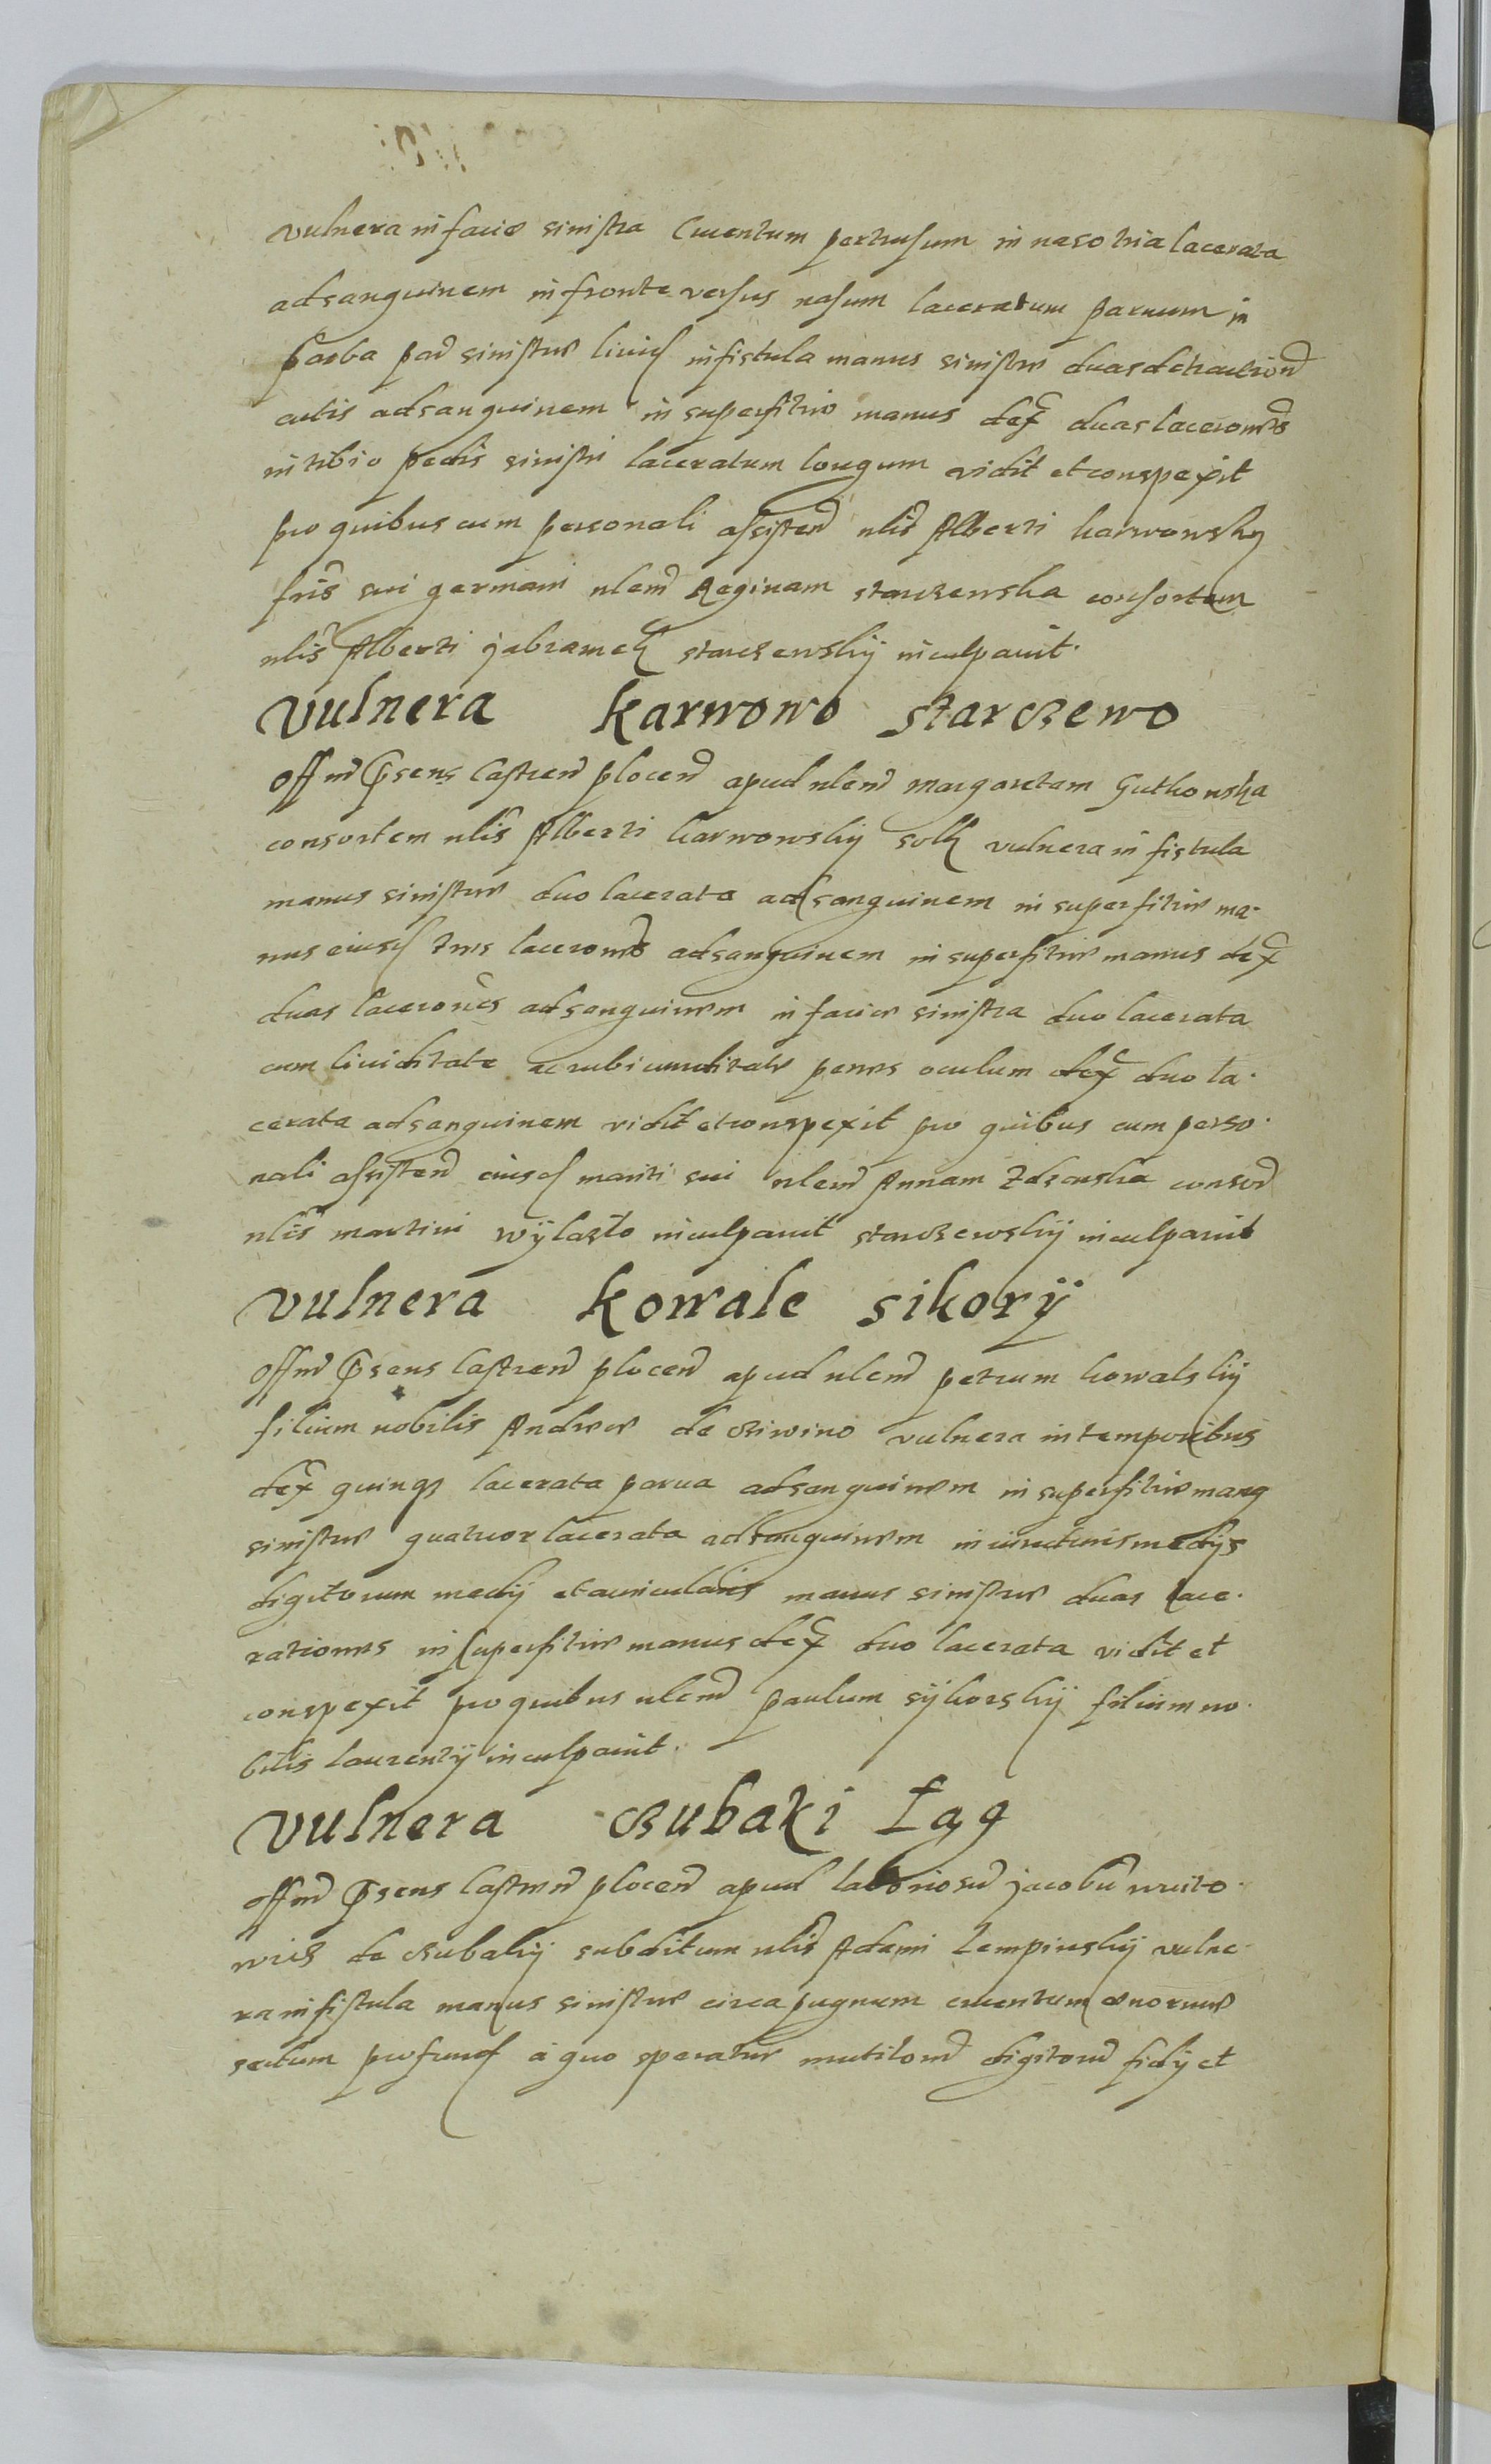 vulnera in facie sinistra cruentum pertusum in naso tria lacerata
ad sanguinem in fronte versus nasum laceratum paruum in
barba par sinistre liuid in fistula manus sinistre duas detraction
cutis ad sanguinem in superfitie manus dex duas laceromes
in tibio pedis sinistri laceratum longum vidit et conspexit
pro quibus cum personali assisten nlis Alberti karwowsky
fris sui germani nlem Reginam starczewska consortem
nlis Alberti jabramek starczewskij inculpauit.
vulnera karwowo starczewo
Offm psens Castren plocen apud nlem margaretam Gutkowska
consortem nlis Alberti karwowskij solk vulnera in fistula
manus sinistre duo lacerata ad sanguinem in superfitie ma-
nus eiusd tres laceromes ad sanguinem in superfitie manus dex
duas lacerones ad sanguinem in facie sinistra duo lacerata
cum liuiditate ac rubicunditate penes oculum dex duo la-
cerata ad sanguinem vidit et conspexit pro quibus cum perso-
nali assisten eiusd mariti sui nlem Annam Zdzarska consor
nlis martini wÿlazlo inculpauit starczewskij inculpauit
vulnera kowale sikorÿ
Offm psens Castren plocen apud nlem petrum kowalskij
filium nobilis Andree de cziwino vulnera in temporibus
dex quinqz lacerata parua ad sanguinem in superfitie manq
sinistre quatuor lacerata ad sanguinem in iuncturis medijs
digitorum medij et auricularis manus sinistre duas lace-
rationes in superfitie manus dex duo lacerata vidit et
conspexit pro quibus nlem paulum sÿkorskij filium no-
bilis laurentij inculpauit.
vulnera czubaki Lag
offm psens Castren plocen apud laboriosu jacobu woito-
wicz de czubakij subditum nlis Adami Lempinskij vulne-
ra in fistula manus sinistre circa pugnum cruentum enorme
sectum profund a quo speratur mutilom digitoru fidij et